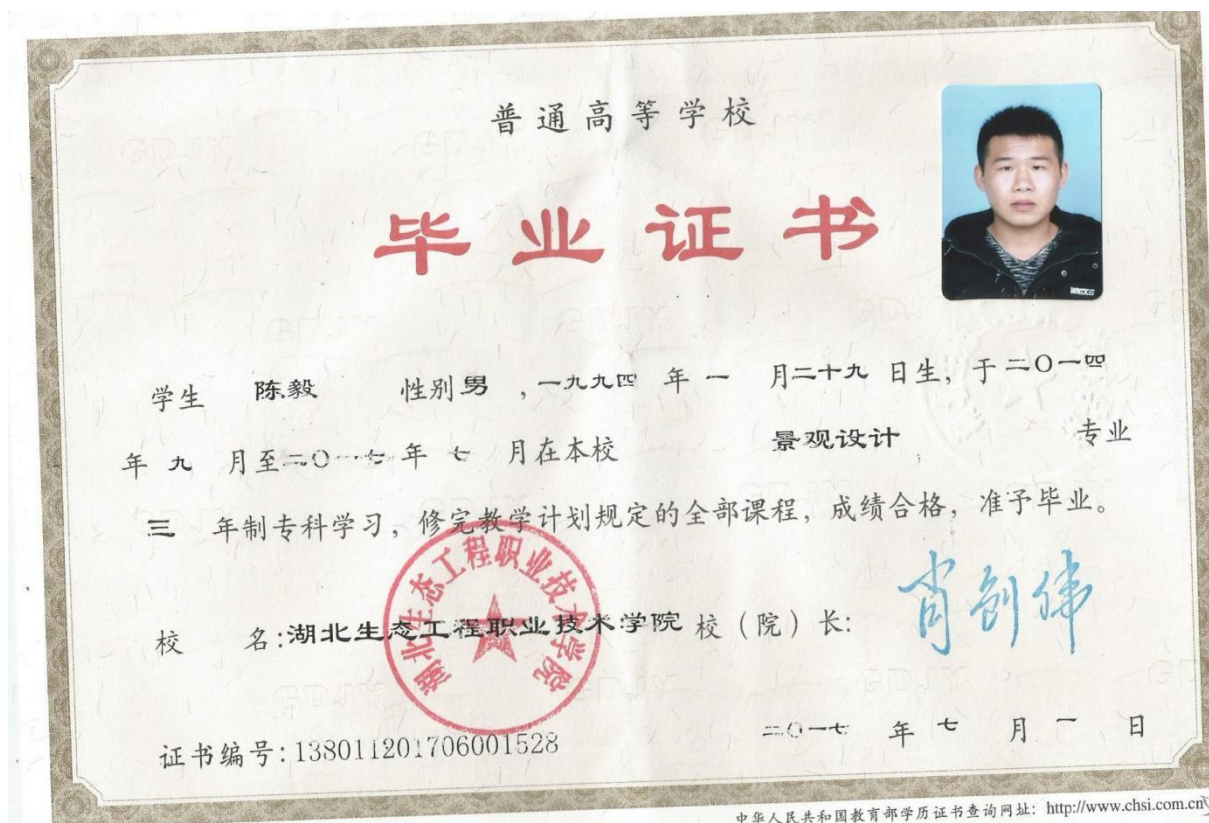 普通高等学校
毕业证书
学生 陈毅 性别 男 ，一九九四 年 一 月 二十九 日生，于 二〇一四
年 九 月至 二〇一七 年 七 月在本校 景观设计 专业
三 年制专科学习，修完教学计划规定的全部课程，成绩合格，准予毕业。
校 名：湖北生态工程职业技术学院 校（院）长：肖创伟
湖北生态工程职业技术学院
二〇一七 年 七 月 一 日
证书编号：138011201706001528
中华人民共和国教育部学历证书查询网址：http://www.chsi.com.cn